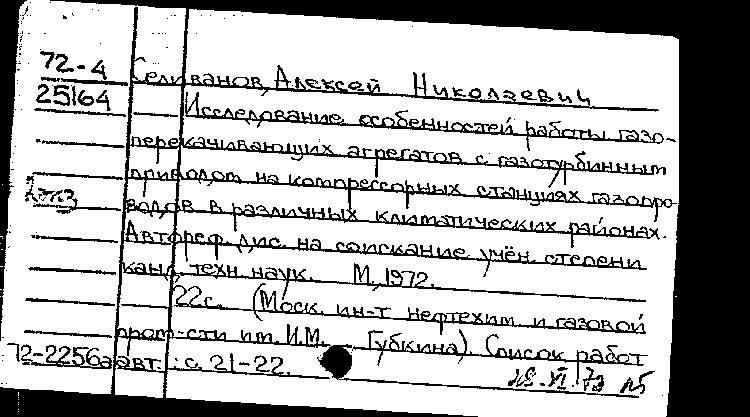 72-4 Селиванов, Алексей Николаевич
25164 Исследование особенностей работы газо-
перекачивающих агрегатов с газотурбинным
приводом на компрессорных станциях газопро-
водов в различных климатических районах.
Автореф. дис. на соискание учён. степени
канд. техн. наук. М, 1972.
22с. (Моск. ин-т нефтехим. и газовой
пром-сти им. И.М. Губкина). Список работ
72-2256а авт.: с. 21-22.